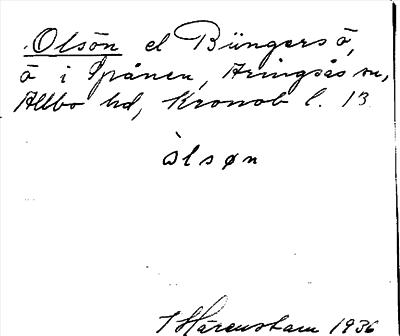 Olsön el Büngersö,
ö i Spånen, Aringsås sn,
Allbo hd, Kronob l. 13
òlsøn
I Härenstam 1936